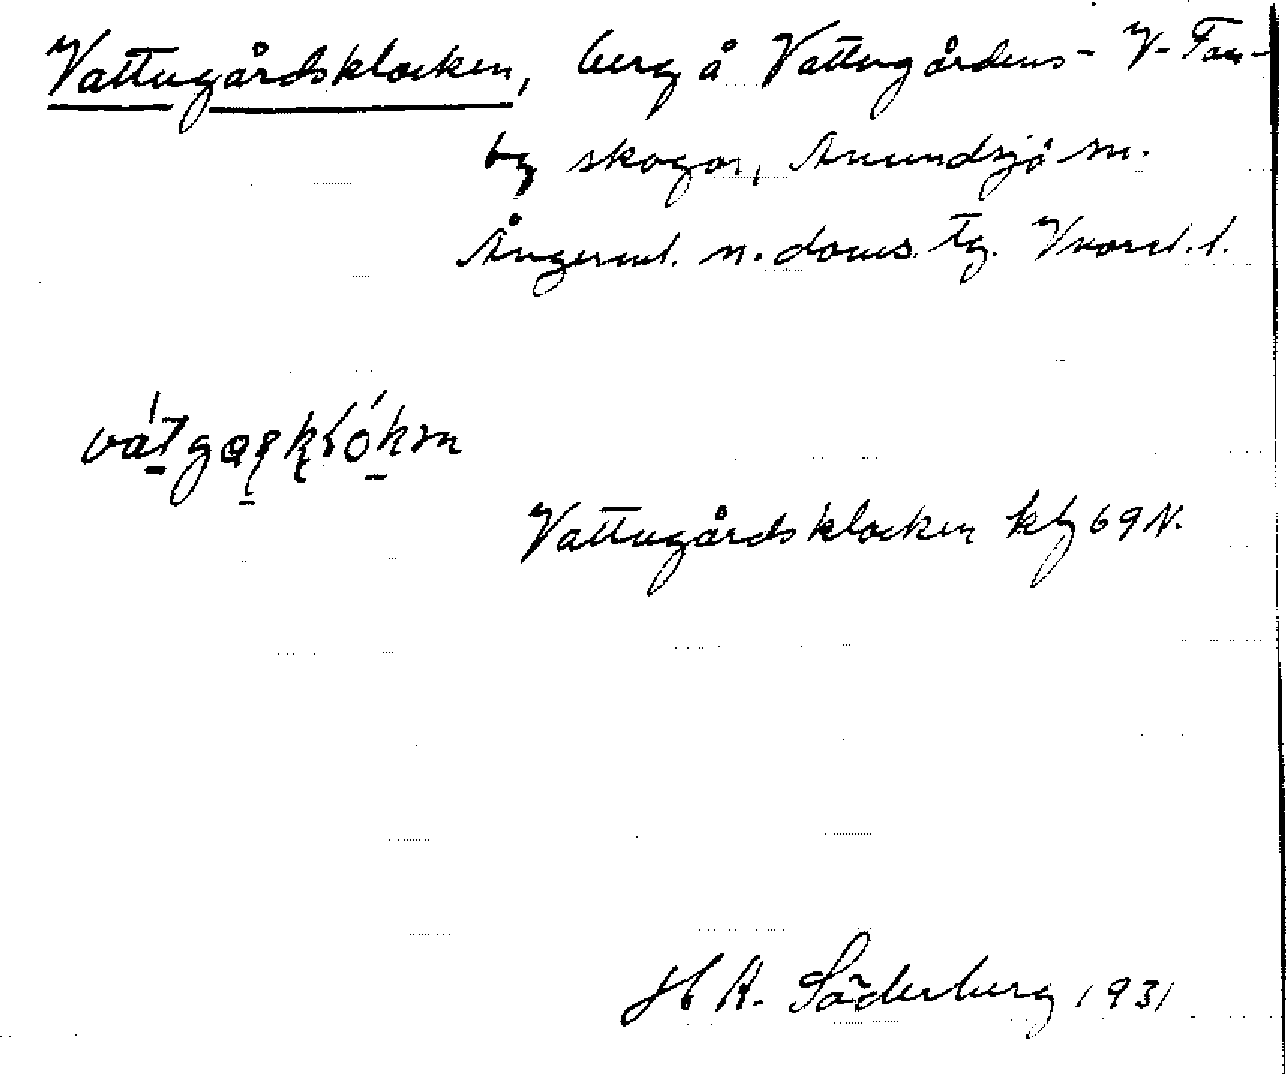 Vattugårdsklocken, berg å Vattugårdens- V-Tan-
by skogar, Anundsjö sn.
Ångerml. n. doms. tg. Vnorrl. l.
Vattugårdsklocken kb 69 N.
H A. Söderberg 1931